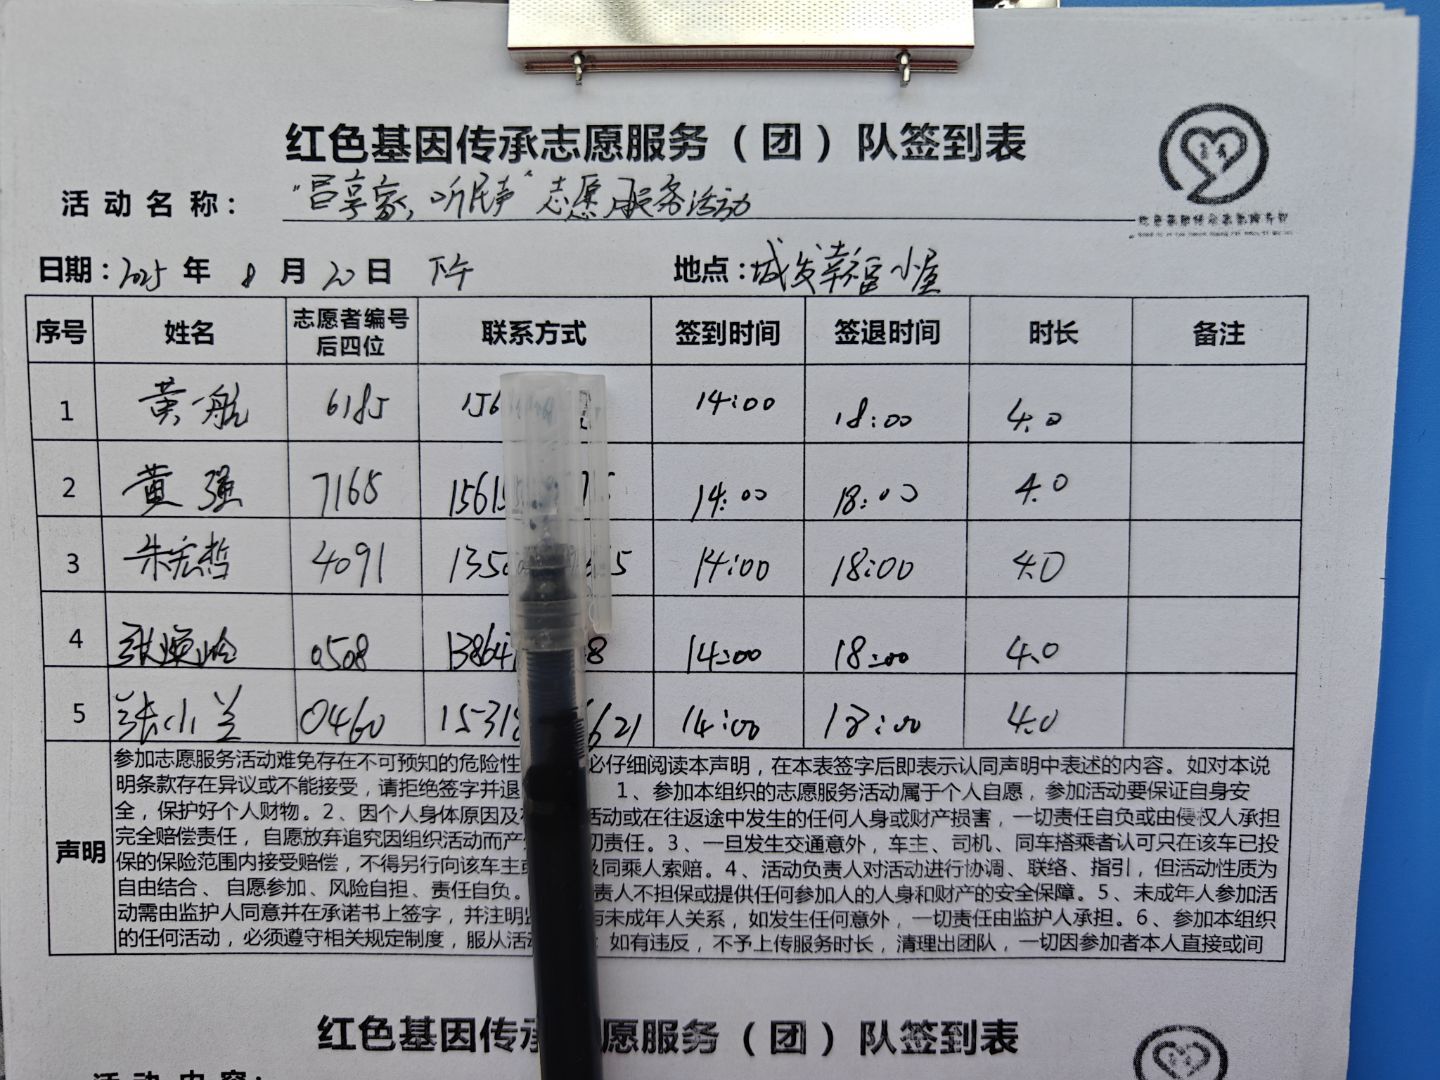 红色基因传承志愿服务（团）队签到表
活动名称：“吕享家，听民声”志愿服务活动
日期：2025年 8月20日 下午 地点：城发幸福小屋
序号 姓名 志愿者编号后四位 联系方式 签到时间 签退时间 时长 备注
1 黄一航 6185 156 14:00 18:00 4.0
2 黄强 7165 1561 14:00 18:00 4.0
3 朱宏哲 4091 135 5 14:00 18:00 4.0
4 张焕玲 0508 13864 8 14:00 18:00 4.0
5 张小兰 0460 1531 6621 14:00 18:00 4.0
声明
参加志愿服务活动难免存在不可预知的危险性 必仔细阅读本声明，在本表签字后即表示认同声明中表述的内容。如对本说
明条款存在异议或不能接受，请拒绝签字并退 1、参加本组织的志愿服务活动属于个人自愿，参加活动要保证自身安
全，保护好个人财物。2、因个人身体原因及 活动或在往返途中发生的任何人身或财产损害，一切责任自负或由侵权人承担
完全赔偿责任，自愿放弃追究因组织活动而产 切责任。3、一旦发生交通意外，车主、司机、同车搭乘者认可只在该车已投
保的保险范围内接受赔偿，不得另行向该车主或 及同乘人索赔。4、活动负责人对活动进行协调、联络、指引，但活动性质为
自由结合、自愿参加、风险自担、责任自负。 责人不担保或提供任何参加人的人身和财产的安全保障。5、未成年人参加活
动需由监护人同意并在承诺书上签字，并注明监 与未成年人关系，如发生任何意外，一切责任由监护人承担。6、参加本组织
的任何活动，必须遵守相关规定制度，服从活动 ；如有违反，不予上传服务时长，清理出团队，一切因参加者本人直接或间
红色基因传承 愿服务（团）队签到表
活动内容：